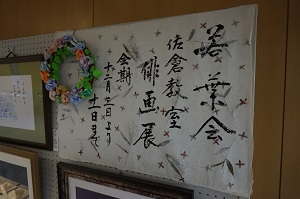 若葉会
佐倉教室
俳画展
会期
十二月三日より
十一日まで